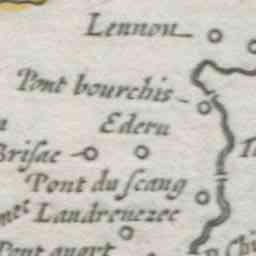 Lennon
Pont bourchis
Ederu
Brisac
Pont du scang
Landrenezec
Pont auort